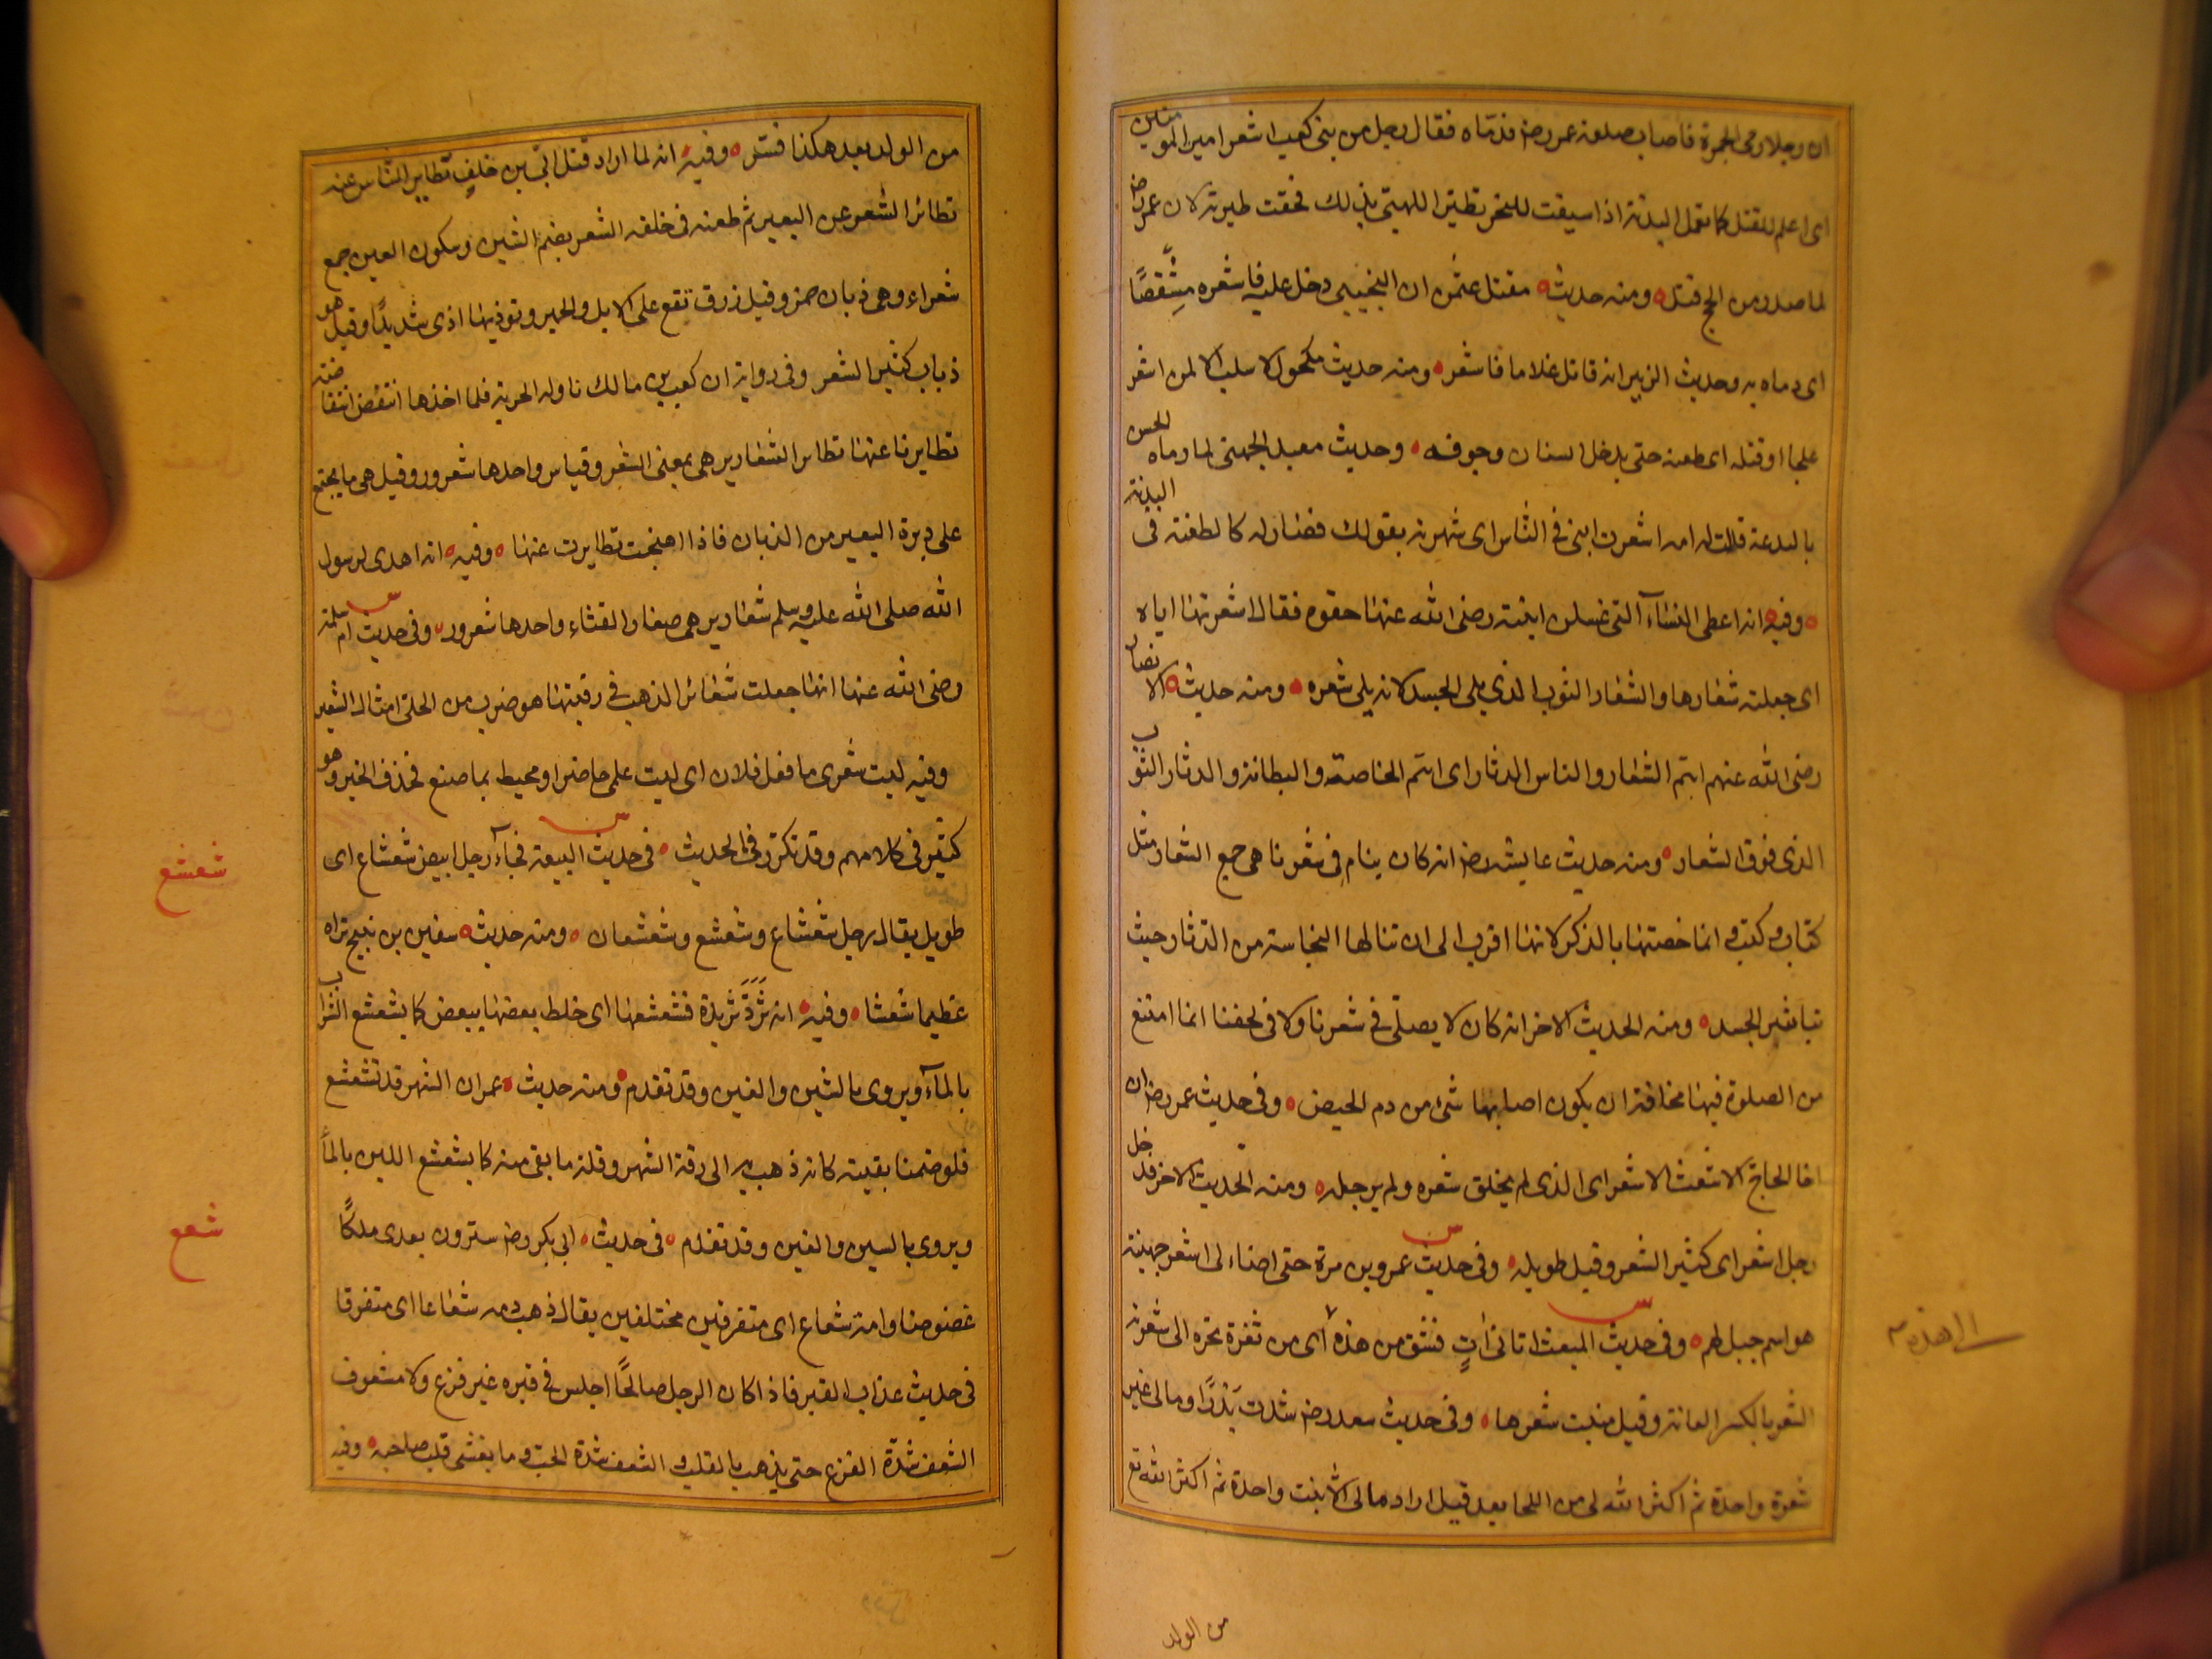 ان رجلا رمى الجمرة فاصاب صلعة عمر رضـ فدماه فقال رجل من بنى كعب اشعر امير المومنين
اى اعلم للقتل كما تعمل البدنة اذا سيقت للنحر تطير اللهبى بذلك فحقت طيرته لان عمر رضـ
لما صدر من الحج قتل ومنه حديث مقتل عثمن ان التجيبى دخل عليه فاشعره مشقصًا
اى دماه به وحديث الزبير انه قاتل غلاما فاشعر ومنه حديث مكحول لا سلب الا لمن اشعر
علجا او قتله اى طعنه حتى يدخل السنان وجوفه وحديث معبد الجهنى لما رماه الحسن
بالبدعة قالت له امه اشعرت ابنى فى الناس اى شهرته بقولك فصار له كالطعنة فى البدنة
وفيه انه اعطى النساء التى غسلن ابنته رضى الله عنها حقوه فقال اشعرنها اياه
اى جعلنه شعارها والشعار الثوب الذى يلى الجسد لانه يلى شعره ومنه حديث الانصار
رضى الله عنهم انتم الشعار والناس الدثار اى انتم الخاصة والبطانة والدثار الثوب
الذى فوق الشعار ومنه حديث عايشه رضـ انه كان ينام فى شعرنا هى جمع الشعار مثل
كتاب وكتب وانما خصتها بالذكر لانها اقرب الى ان تنالها النجاسة من الدثار حيث
تباشير الجسد ومنه الحديث الاخر انه كان لا يصلى فى شعرنا ولا فى لحفنا انما امتنع
من الصلوة فيها مخافة ان يكون اصابها شئ من دم الحيض وفى حديث عمر رضـ ان
اخا الحاج الاشعث الاشعر اى الذى لم يحلق شعره ولم يرجله ومنه الحديث الاخر فدخل
رجل اشعر اى كثير الشعر وقيل طويله وفى حديث عمرو بن مرة حتى اضاء لى اشعر جهينة
هو اسم جبل لهم وفى حديث المبعث اتانى اٰتٍ فشق من هذه اى من ثغرة نحره الى شعرته
الشعرة بالكسر العانة وقيل منبت شعرها وفى حديث سعد رضـ شدت بَدْرًا وما لى غير
شعرة واحدة ثم اكثر الله لى من اللحا بعد قيل اراد ما لى الا بنت واحدة ثم اكثر الله تع
من الولد
من الولد بعد هكذا فسر وفيه انه لما اراد قتل ابى بن خلف تطاير الناس عنه
تطائر الشعر عن البعير ثم طعنه فى حلقه الشعر بضم الشين وسكون العين جمع
شعراء وهى ذبان حمر وقيل زرق تقع على الابل والحمير وتوذيها اذى شديدًا وقيل هو
ذباب كثير الشعر وفى رواية ان كعب بن مالك ناوله الحربة فلما اخذها انتفض انتفاضة
تطايرنا عنها تطاير الشعارير هى بمعنى الشعر وقياس واحدها شعرور وقيل هى ما يجتمع
على دبرة البعير من الذبان فاذا اهيجت تطايرت عنها وفيه انه اهدى لرسول
الله صلى الله عليه وسلم شعارير هى صغار القثاء واحدها شعرور وفى حديث ام سلمة
رضى الله عنها انها جعلت شعائر الذهب فى رقبتها هو ضرب من الحلى امثال الشعير
وفيه ليت شعرى ما فعل فلان اى ليت علمى حاضر او محيط بما صنع فحذف الخبر وهو
كثير فى كلامهم وقد تكرر فى الحديث فى حديث البيعة فجاء رجل ابيض شعشاع اى
شعشع
طويل يقال رجل شعشاع وشعشع وشعشعان ومنه حديث سفين بن نبيح تراه
عظيما شعشا وفيه انه ثَرَدَ ثريدة فشعشعها اى خلط بعضها ببعض كما يشعشع الشراب
بالماء ويروى بالشين والغين وقد تقدم ومنه حديث عمر ان الشهر قد تشعشع
فلو ضمنا بقيته كانه ذهب به الى رقة الشهر وقلة ما بقى منه كما يشعشع اللبن بالماء
ويروى بالسين والغين وقد تقدم فى حديث ابى بكر رضـ سترون بعدى ملكًا
شعع
عضوضا وامة شعاع اى متفرقين مختلفين يقال ذهب دمه شعاعا اى متفرقا
فى حديث عذاب القبر فاذا كان الرجل صالحًا اجلس فى قبره غير فزع ولا مشعوف
الشعف شدّة الفزع حتى يذهب بالقلب والشعف شدة الحب وما يغشى قلب صاحبه وفيه